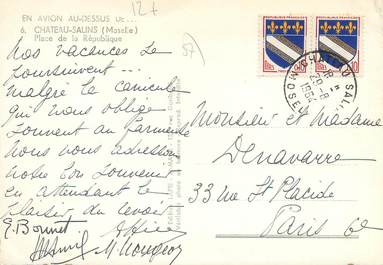 12+
EN AVION AU-DESSUS DE...
6. CHATEAU-SALINS (Moselle)
Place de la République
57
Nos vacances se
poursuivent...
malgré la canicule
qui nous oblige
souvent au farniente
Nous vous adressons
notre bon souvenir
en attendant le
plaisir de vous
G. Bonnet
Monsieur et Madame
Denavarre
33 rue St Placide
Paris 6e
CHATEAU-SALINS
MOSELLE
1964
TROYES
0,10